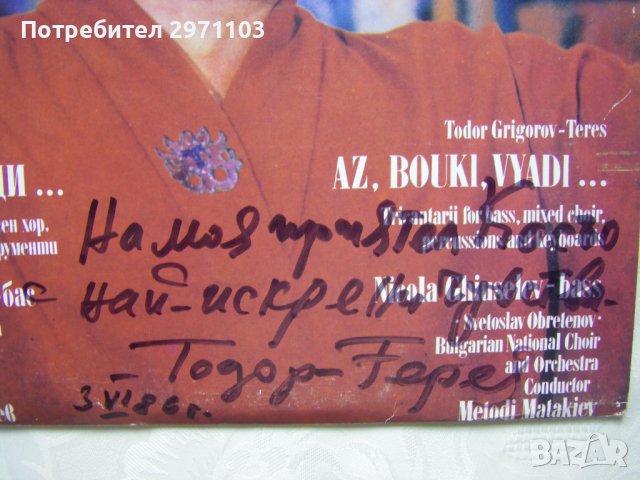 Потребител 2971103
Todor Grigorov-Teres
AZ, BOUKI, VYADI ...
ДИ ...
ен хор,
рументи
Oricantarij for bass, mixed choir,
percussions and keyboards
бас
Nicola Ghiuselev-bass
Svetoslav Obretenov
Bulgarian National Choir
and Orchestra
Conductor
Metodi Matakiev
ев
На моя приятел Косьо
с най-искрени чувства.
Тодор-Терез
3 VI 86 г.
BAZAR